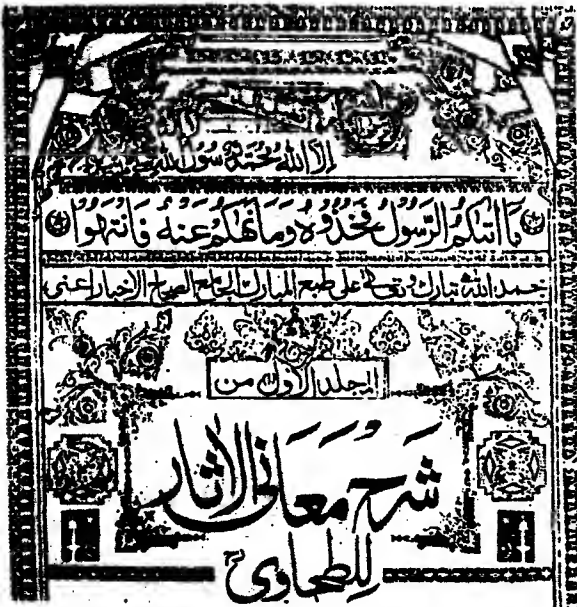 إلا الله محمد رسول الله
مَا اٰتٰىكُمُ الرَّسُوْلُ فَخُذُوْهُ وَمَا نَهٰىكُمْ عَنْهُ فَانْتَهُوْا
بحمد الله تبارك وتعالى على طبع المبارك الجامع الصحاح الاخبار اعنى
المجلد الاول من
شَرح مَعَانى الاٰثار
للطحاوى